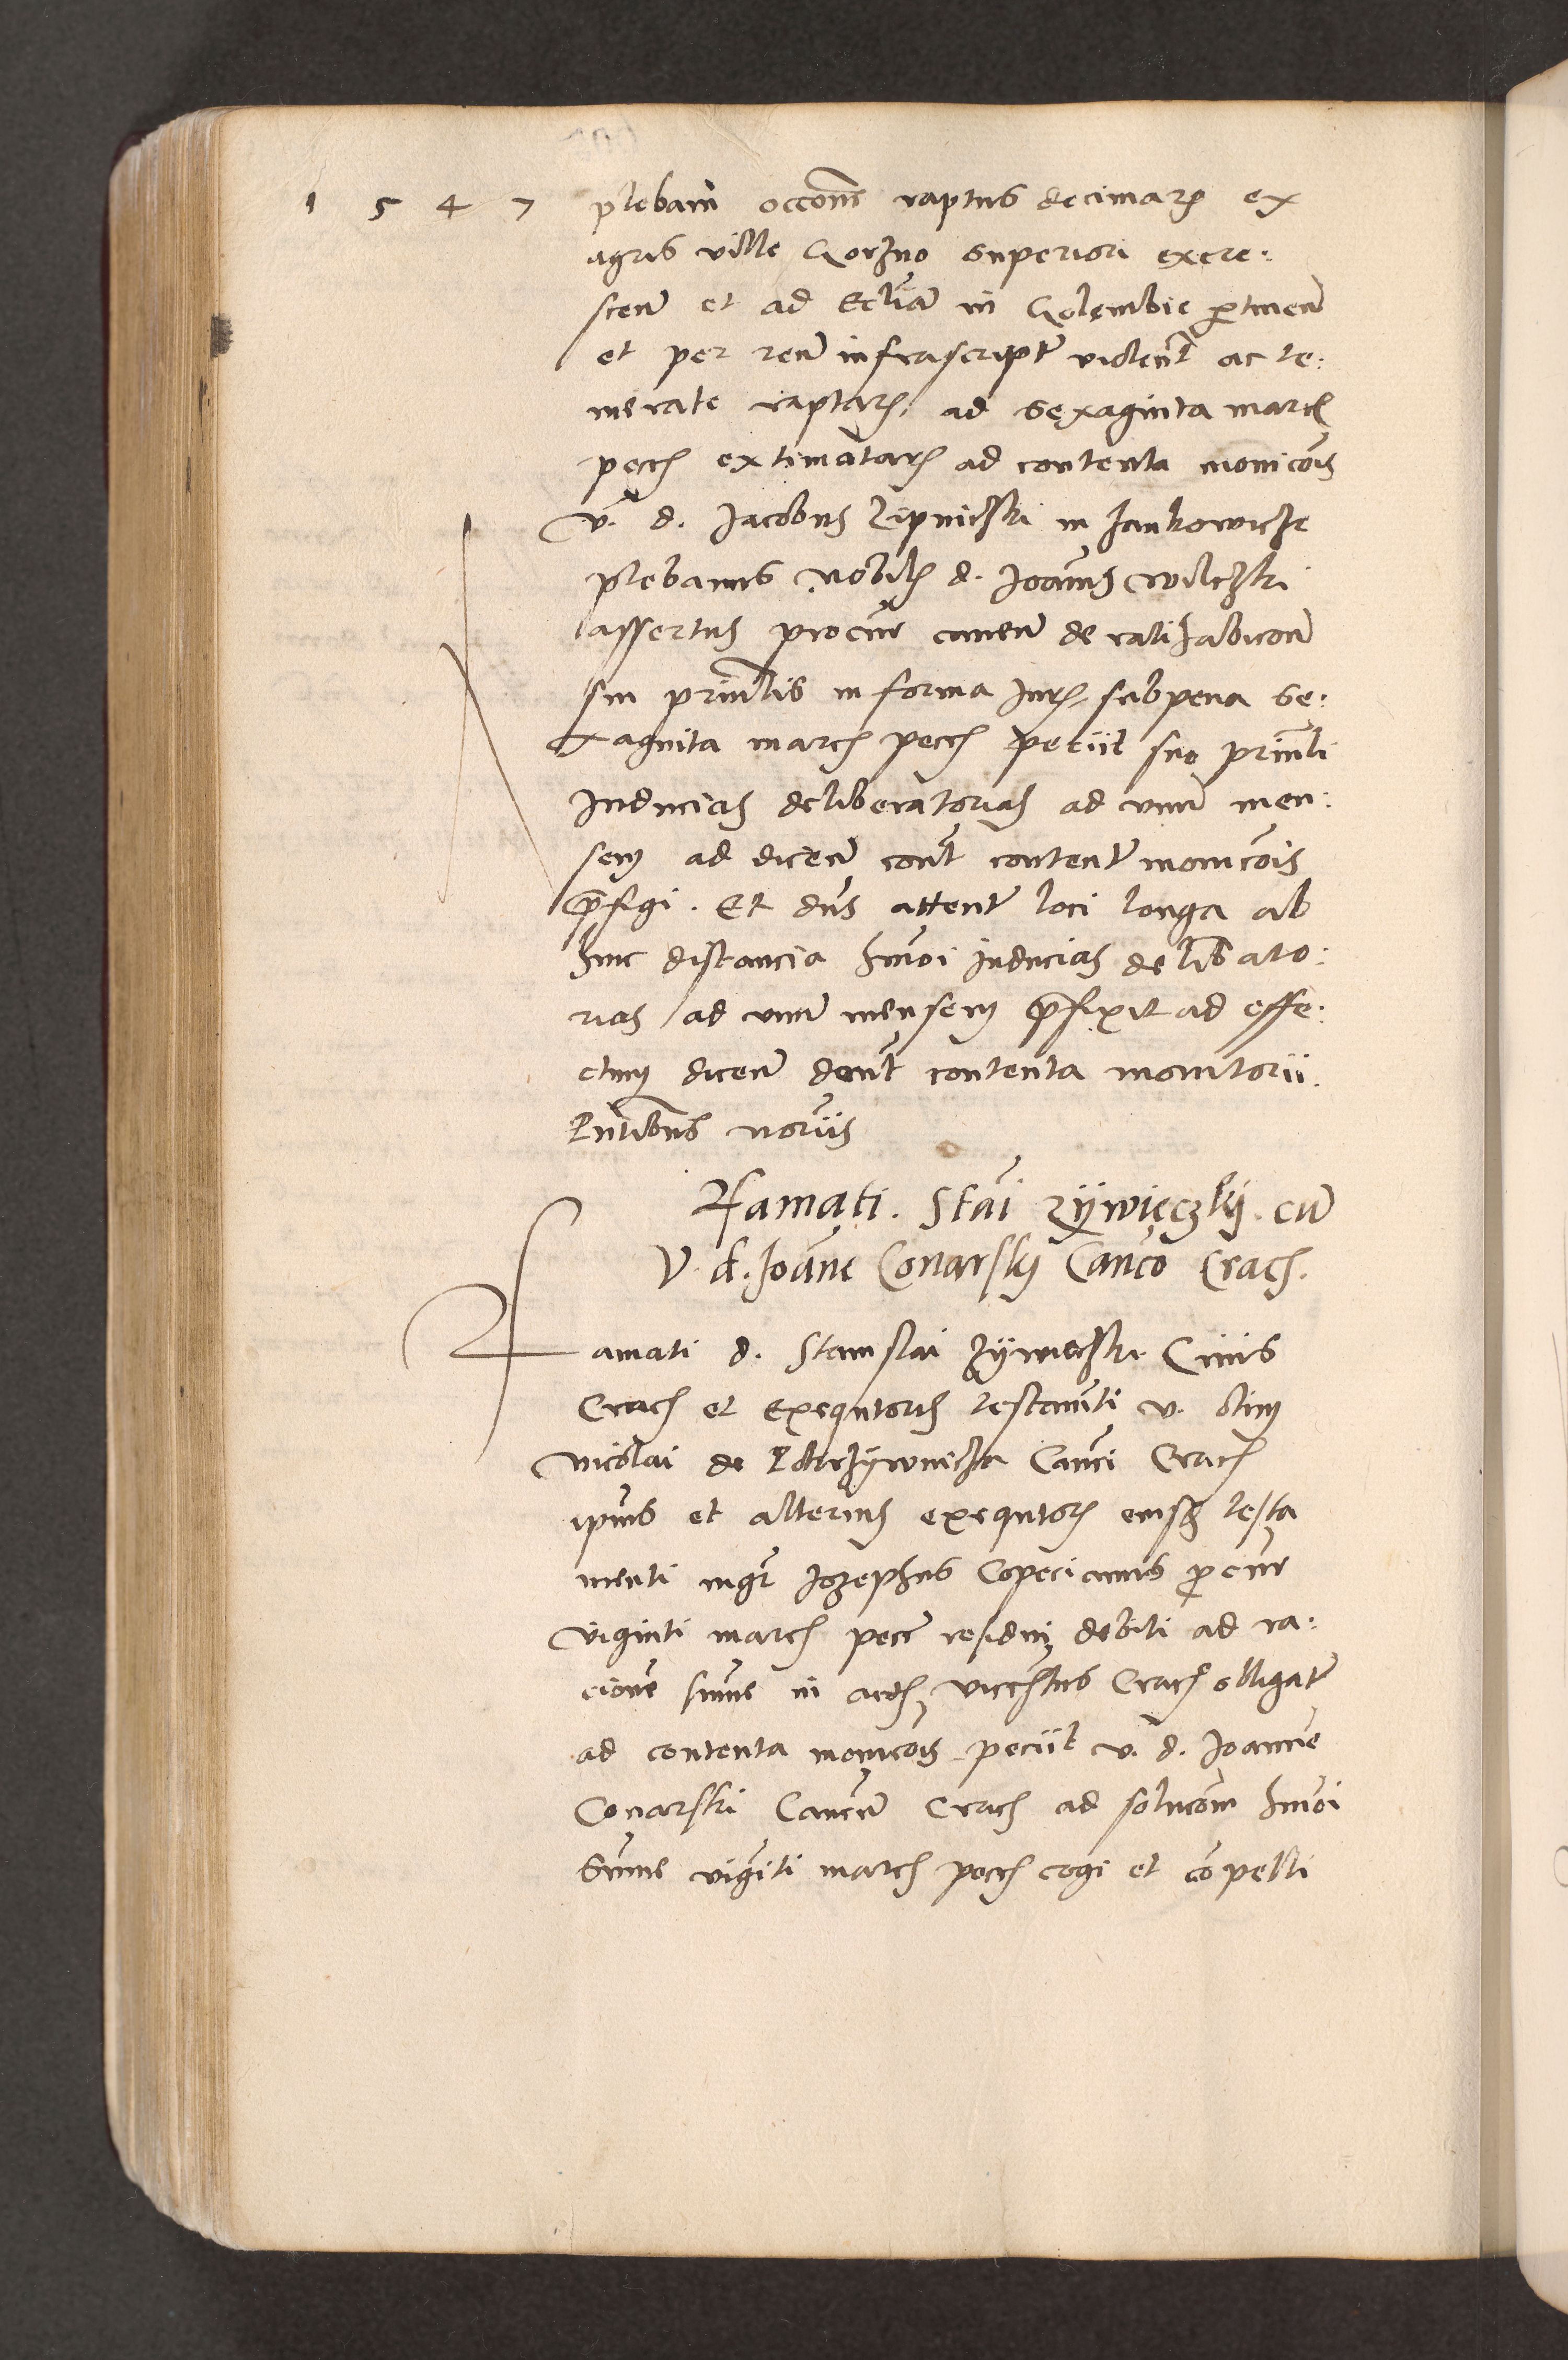 1 5 4 7 plebani occone raptus decimarum ex
agris ville Gorzno superiori excre:
scen et ad Eccliam in Golembie ptinen
et per reum infrascriptum violent ac te:
merate raptarum ad sexaginta march
pecch extimatarum ad contenta monicois
V. d. Jacobus Lipniczki in Jankowicze
plebanus Nobilis d. Joannis Wilczki
assertus procur cauen de ratihabicone
sui prinlis in forma Juris sub pena se:
xaginta march pecch peciit suo prinli
Inducias deliberatorias ad vnum men:
sem ad dicen cont contentum monicois
prefigi. Et dns attento loci longa ab
hinc distancia hmoi inducias delibato:
rias ad vnum mensem prefixit ad effe:
ctum dicen cont contenta monitorii.
Pntibus noriis
Famati. Stai Zÿwieczkÿ. cu
V. d. Joane Conarskÿ Canco Crach.
Famati d. Stanislai Zÿwieczki Ciuis
Crach et Exequtoris testamti v. olim
Nicolai de Canci Crach
ipius et alterius exequtoris eiusdem testa
menti mgr Jozephus Copecianus pcur
viginti march pecc residui debiti ad ra:
cione sume in actis Crach obligate
ad contenta monicois peciit v. d. Joanne
Conarski Cancum Crach ad solucom hmoi
Sume viginti march pecch cogi et copelli